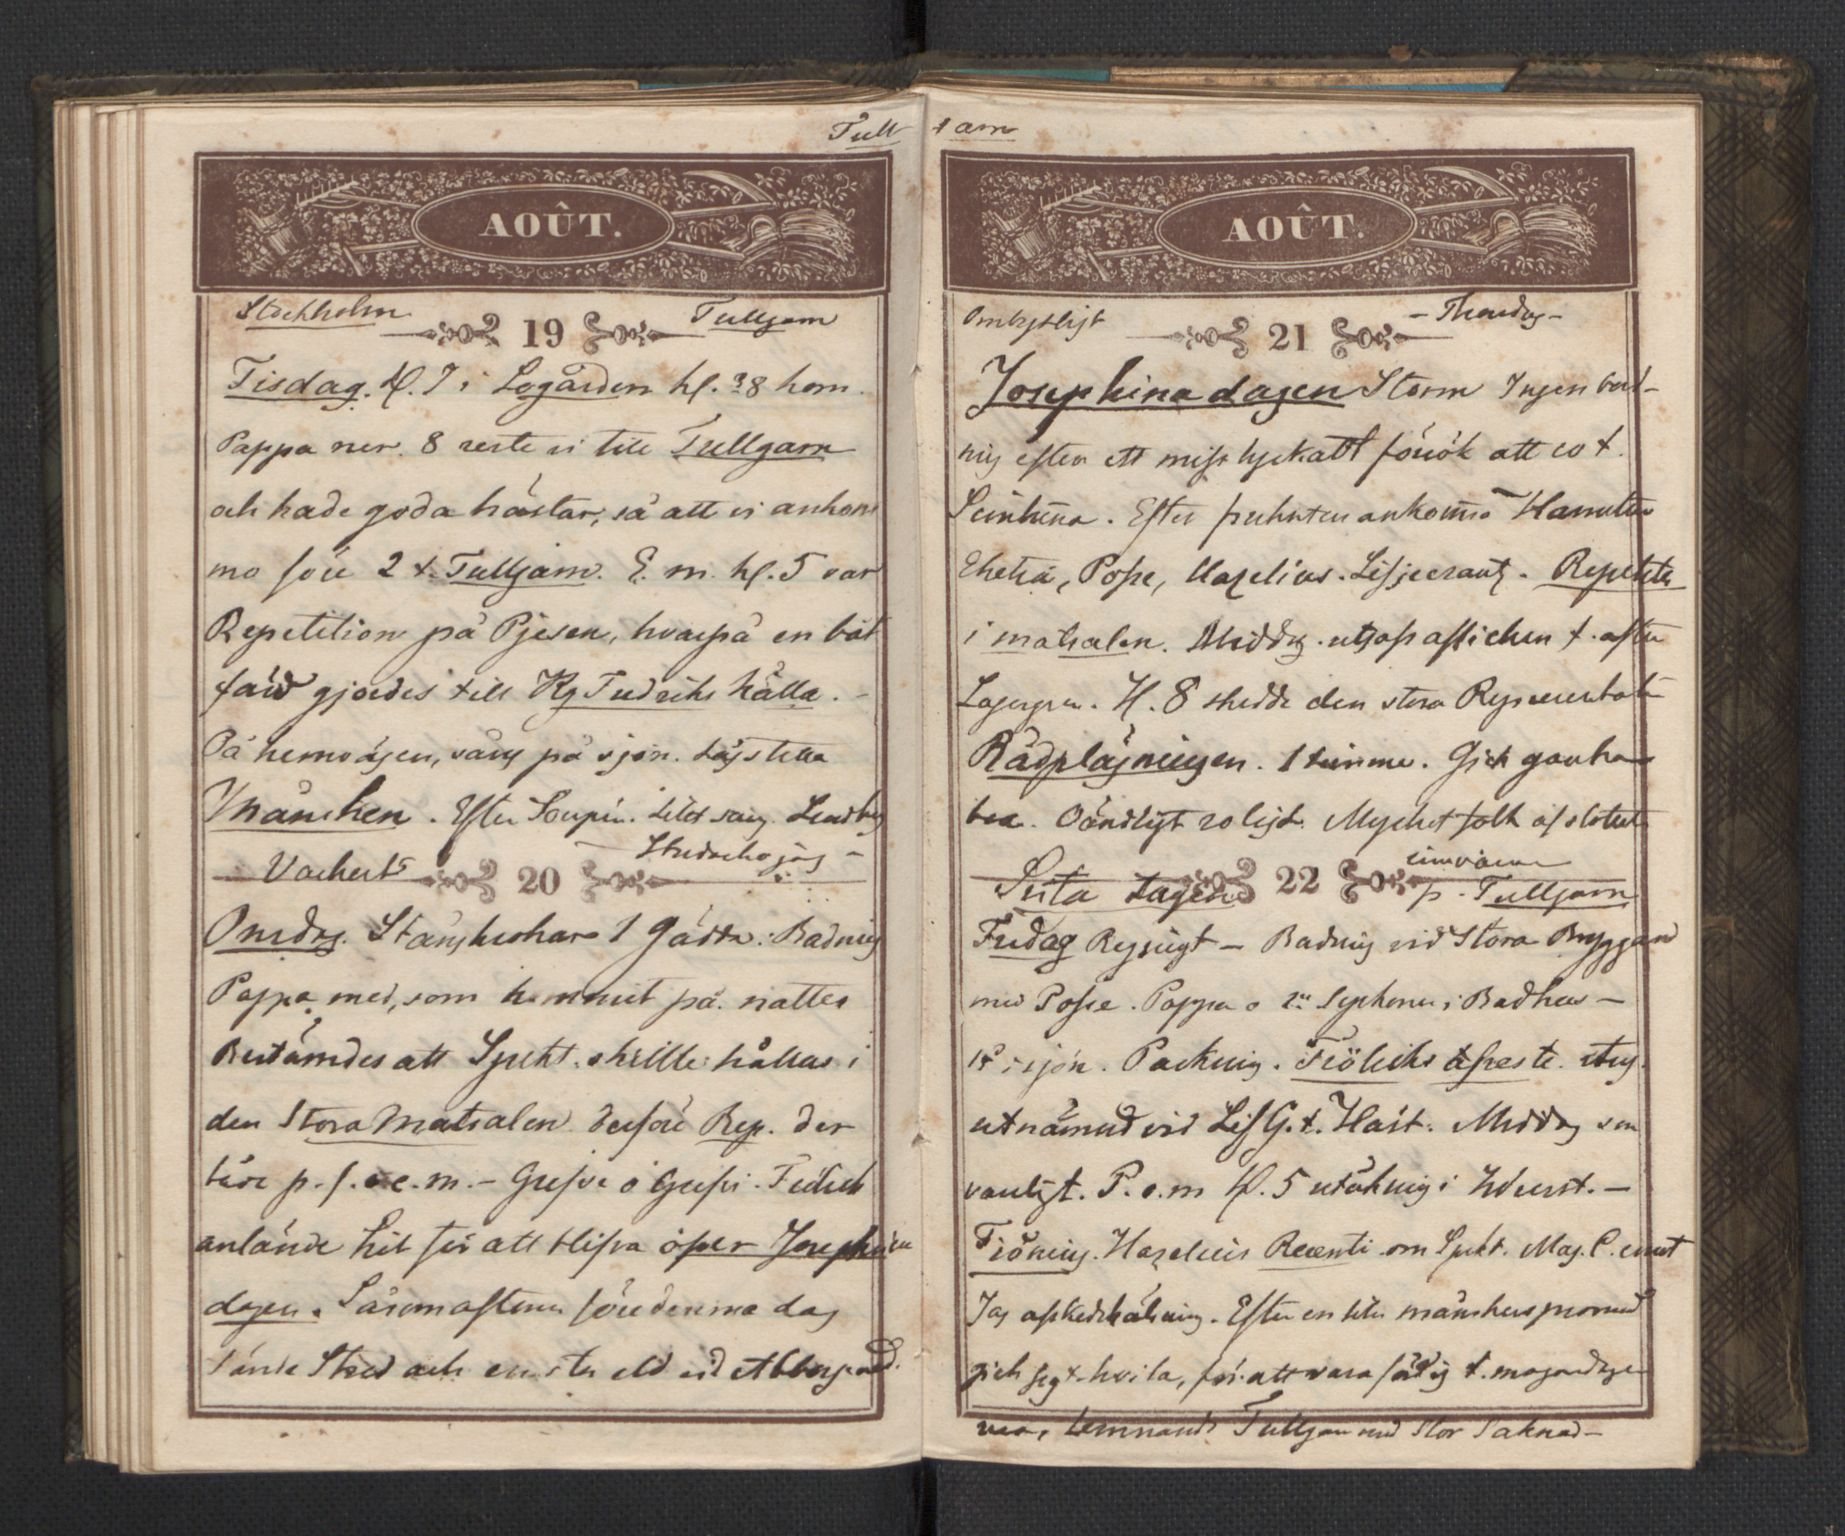 Tull
AOÛT.
Stockholm 19 Tullgarn
Tisdag. Kl. 7 i Logården kl. 8 kom
Pappa ner. 8 reste vi till Tullgarn
och hade goda hästar, så att vi ankom
mo före 2 t. Tullgarn. E. m. kl. 5 var
Repetition på Pjesen, hvarpå en båt
färd gjordes till Kg Fredriks källa. –
På hemvägen, sång på sjön.
Månsken. Efter Soupén. litet sång.
20
Onsdag. 1 Gädda. Badning
Pappa med, som kommit på natten
Bestämdes att Spekt. skulle hållas i
den Stora Matsalen derföre Rep. der
före p. f. o e. m. – Grefve o Grefvi.
anlände hit för att blifva öfver Josephina
dagen. Såsom aftonen före denna dag
och en stor eld vid
garn
AOÛT.
21 – Thorsdag –
Josephina dagen Storm Ingen bad-
ning efter ett misslyckatt försök att ro t.
Efter frukosten ankommo Hamilton
Posse, Hazelius. Liljecrantz. Repetition
i matsalen. Middag. t. afton
Lagergren. Kl. 8 skedde den stora Representation
Rådplägningen. 1 timme. Gick ganska
bra. Oändligt roligt. Mycket folk af slottet
Sista dagen 22 p. Tullgarn
Fredag Regnigt – Badning vid Stora Bryggan
med Posse. Pappa o i Badhus –
i sjön. Packning. Frölichs afreste.
utnämnd vid Lif G. t. Häst. Middag som
vanligt. P. e. m Kl. 5 utåkning i
Hazelius om Spekt. Maj. C.
Jag afskedshälsning. Efter en liten månskens promenad
gick jag t. hvila, för att vara färdig t. morgondagen
Tullgarn med stor Saknad –